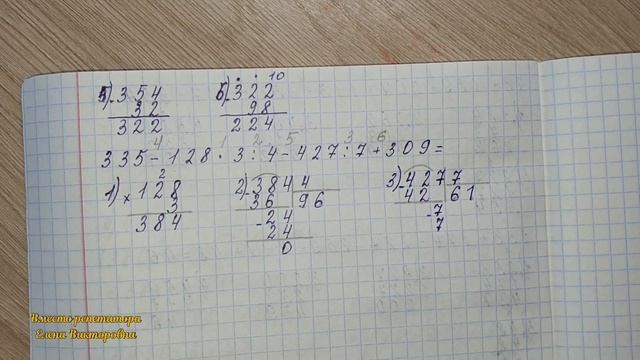 10
5) - 354 6) - 322
32 98
322 224
4 1 2 5 3 6
335 - 128 · 3 : 4 - 427 : 7 + 309 =
2
1) × 128 2) - 384 4 3) - 427 7
3 36 96 42 61
384 - 24 - 7
24 7
0
Вместо репетитора
Елена Викторовна